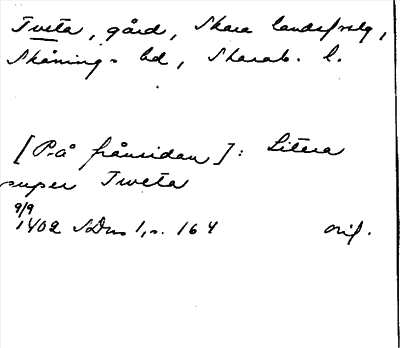 Tveta, gård, Skara landsfrslg,
Skånings hd, Skarab. l.
[På frånsidan]: Litera
super Tweta
9/9
1402 SDns 1, s. 164 orig.